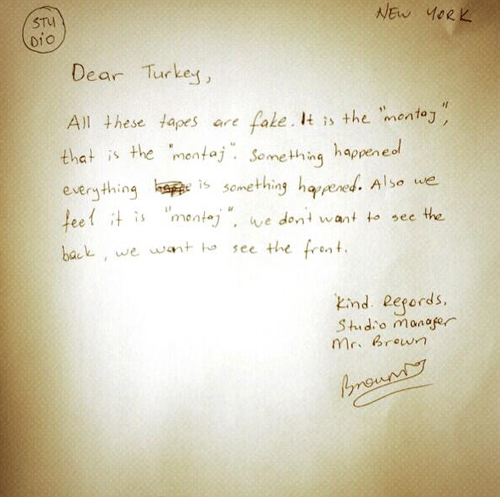 STU
DIO
NEW YORK
Dear Turkey,
All these tapes are fake. It is the "montaj",
that is the "montaj". Something happened
everything is something happened. Also we
feel it is "montaj", we don't want to see the
back, we want to see the front.
Kind. Regards,
Studio Manager
Mr. Brown
Brown